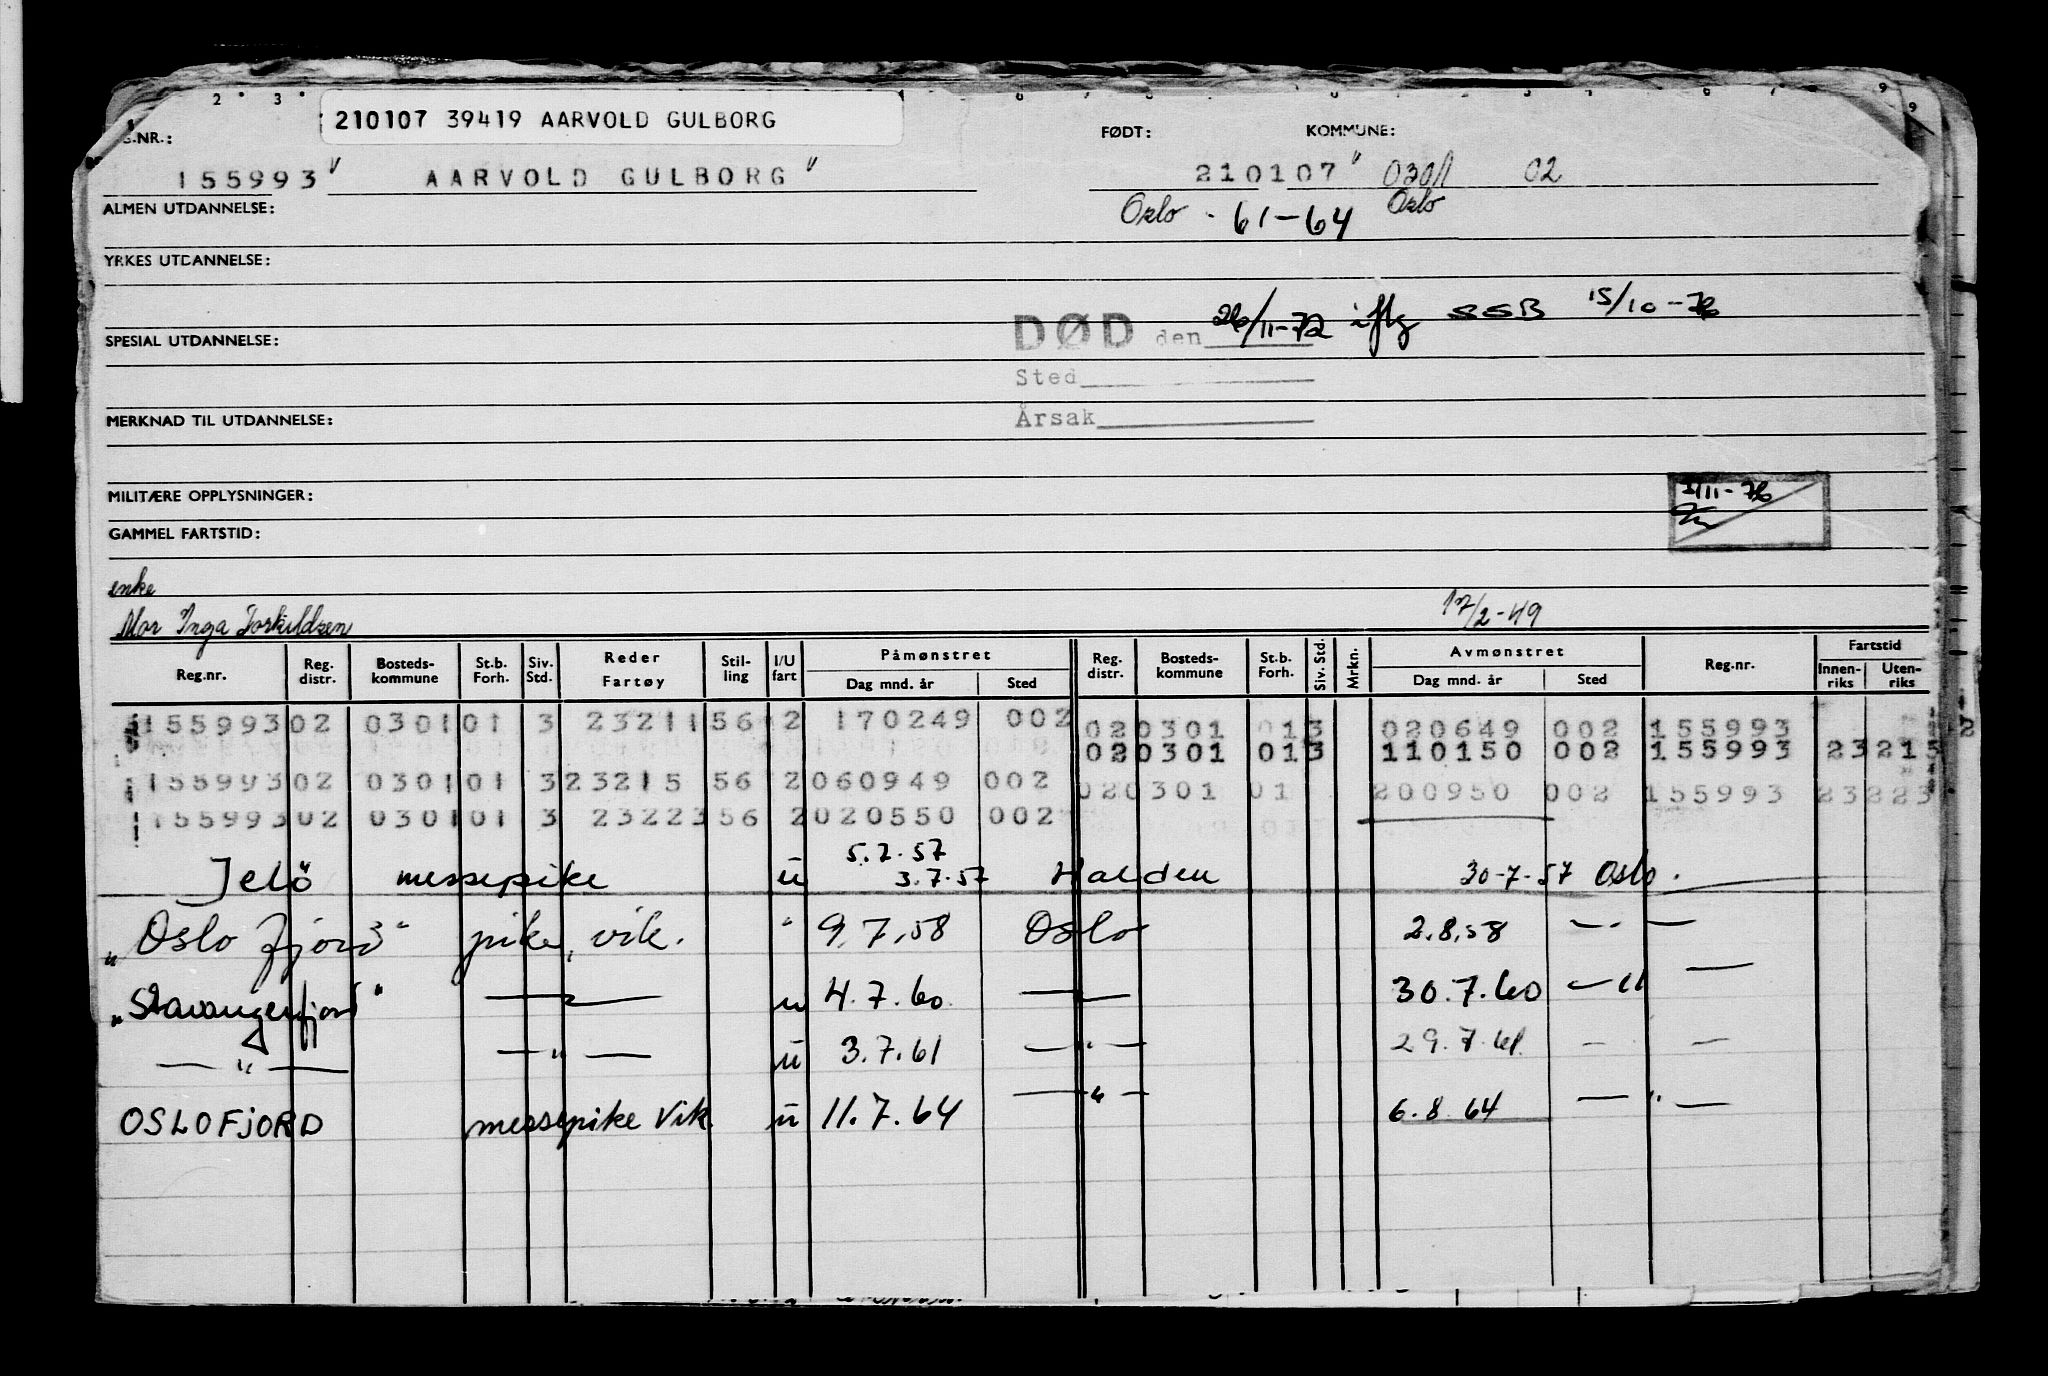 210107 39419 AARVOLD GULBORG
G.NR.: FØDT: KOMMUNE:
155993" AARVOLD GULBORG" 210107" 0301 02
ALMEN UTDANNELSE: Oslo 61-64 Oslo
YRKES UTDANNELSE:
DØD den 26/11-72 iflg SSB 15/10-76
SPESIAL UTDANNELSE:
Sted
MERKNAD TIL UTDANNELSE: Årsak
MILITÆRE OPPLYSNINGER: 11-76
GAMMEL FARTSTID:
enke
Mor Inga Torkildsen 17/2-49
Reg.nr. Reg. distr. Bosteds-kommune St.b. Forh. Siv. Std. Reder Fartøy Stil-ling I/U fart Påmønstret Dag mnd. år Sted Reg. distr. Bosteds-kommune St.b. Forh. Siv. Std. Mrkn. Avmønstret Dag mnd. år Sted Reg.nr. Fartstid Innen-riks Uten-riks
155993 02 0301 01 3 23211 56 2 170249 002 02 0301 01 3 020649 002 155993
02 0301 01 3 110150 002 155993 23215
155993 02 0301 01 3 23215 56 2 060949 002 020301 01 200950 002 155993 23223
155993 02 0301 01 3 23223 56 2 020550 002
5.7.57
Jelö messepike u 3.7.57 Halden 30-7-57 Oslo.
"Oslofjord" pike, vik. " 9.7.58 Oslo 2.8.58 — " —
"Stavangerfjord" — " — u 4.7.60 — " — 30.7.60 — " —
— " — — " — u 3.7.61 — " — 29.7.61 — —
OSLOFJORD messepike Vik. u 11.7.64 — " — 6.8.64 — " —